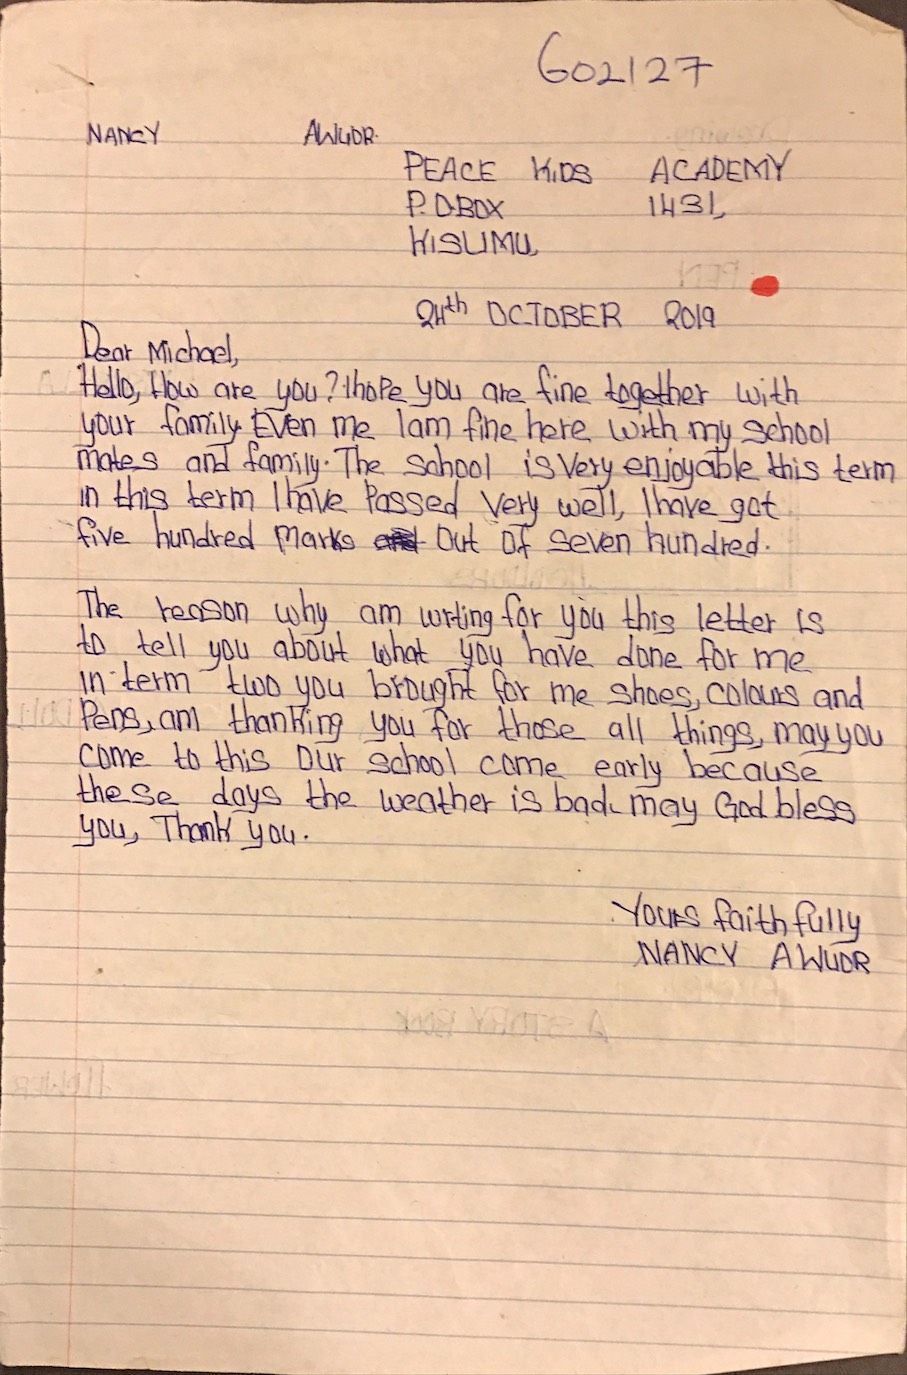 602127
NANCY AWUOR.
PEACE KIDS ACADEMY
P.O.BOX 1431,
KISUMU,
24th OCTOBER 2019
Dear Michael,
Hello, How are you? Ihope you are fine together with
your family. Even me Iam fine here with my school
mates and family. The school is very enjoyable this term
in this term Ihave Passed very well, Ihave got
five hundred marks out of seven hundred.
The reason why am wrting for you this letter is
to tell you about what you have done for me
in term two you brought for me shoes, colours and
Pens, am thanking you for those all things, may you
come to this our school come early because
these days the weather is bad. may God bless
you, Thank you.
Yours faithfully
NANCY AWUOR
PEN
A STORY BOOK
FLOWER